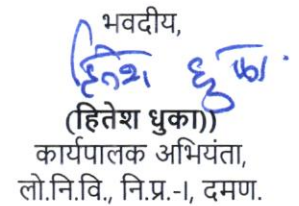 भवदीय,
हितेश धुका
(हितेश धुका))
कार्यपालक अभियंता,
लो.नि.वि., नि.प्र.-I, दमण.